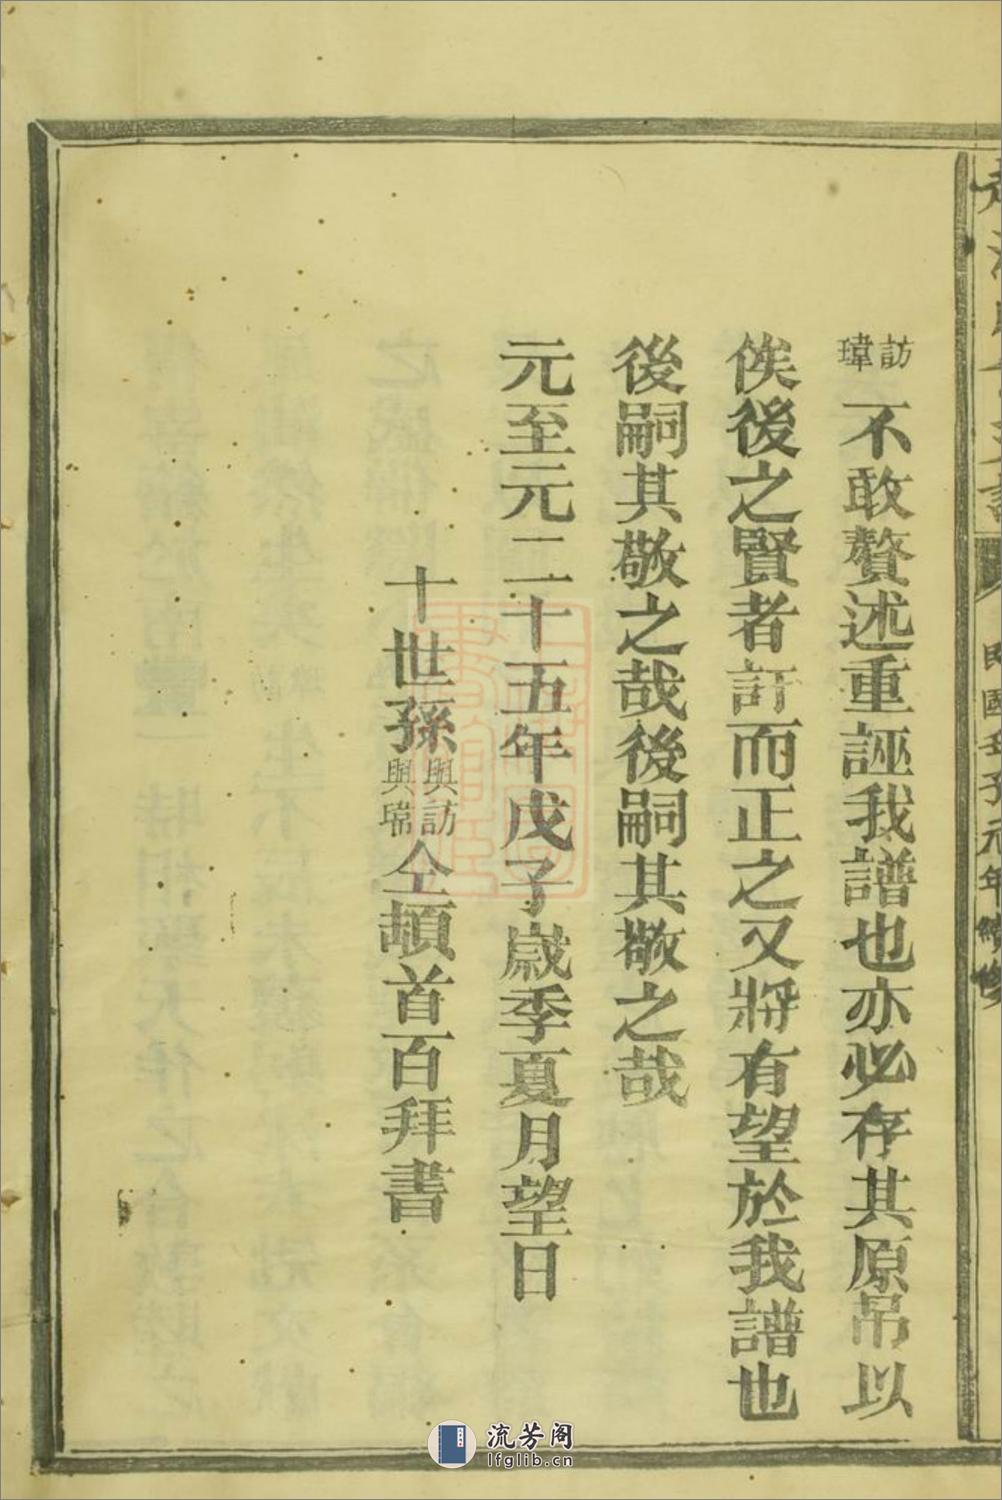 訪瑋不敢贅述重誣我譜也亦必存其原吊以
俟後之賢者訂而正之又將有望於我譜也
後嗣其敬之哉後嗣其敬之哉
元至元二十五年戊子歲季夏月望日
十世孫興訪興瑞仝頓首百拜書
民國壬子元年續修
流芳阁
lfglib.cn